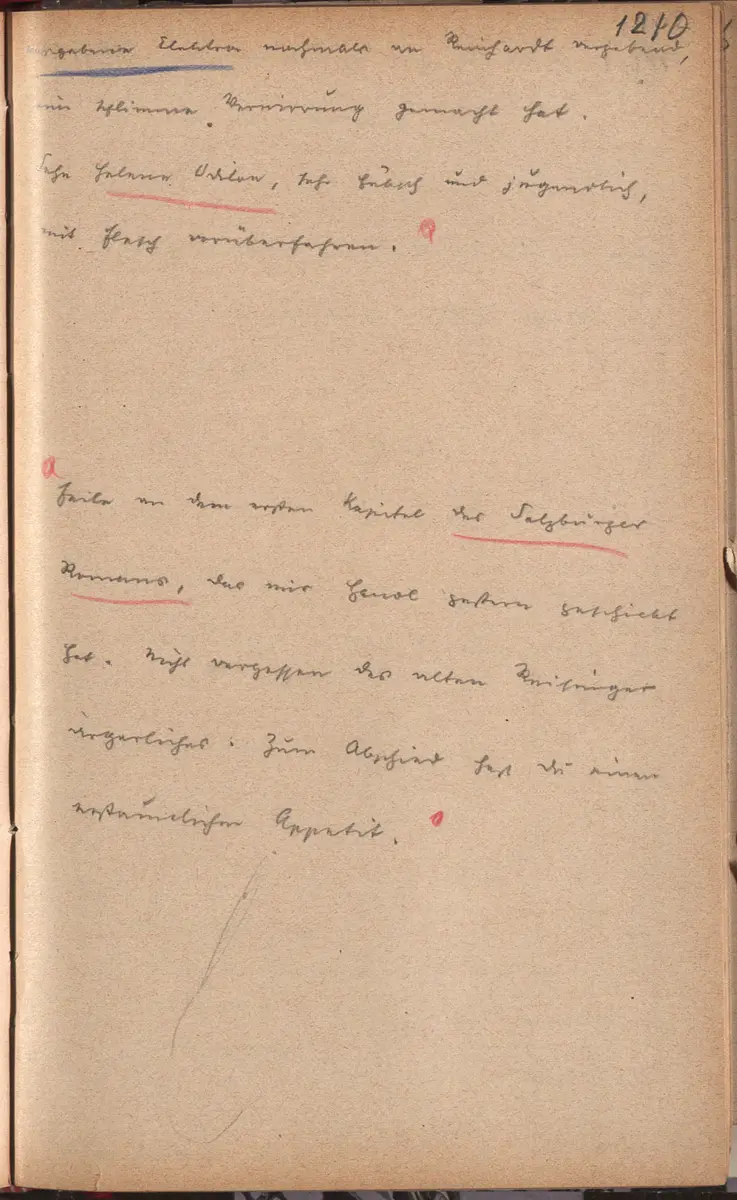 1210
vergebene Elektra nochmals an Reinhardt vergebend,
eine schlimme Verwirrung gemacht hat.
Sehe Helene Odilon, sehr hübsch und jugendlich,
mit Flesch vorüberfahren.
Feile an dem ersten Kapitel des Salzburger
Romans, das mir gestern geschickt
hat. Nicht vergessen des alten
ärgerliches: Zum Abschied hast du einen
erstaunlichen Appetit.